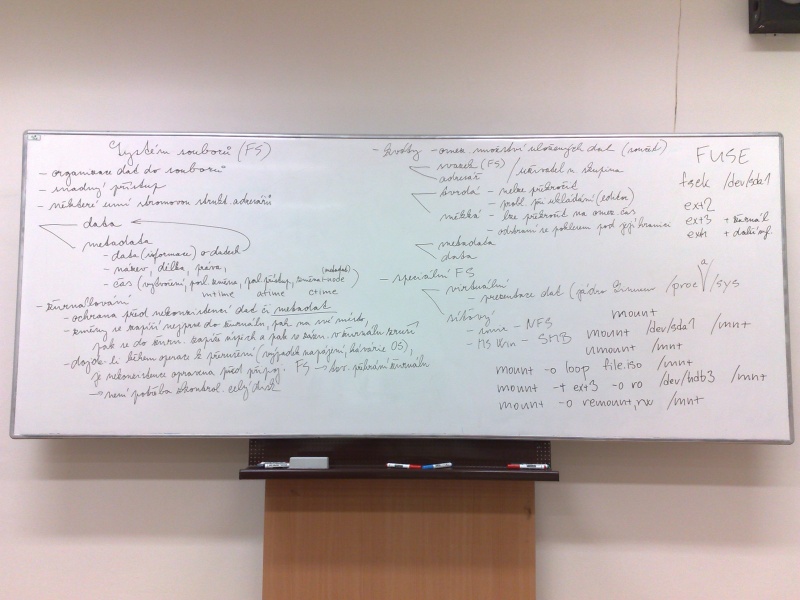 Systém souborů (FS)
- organizace dat do souborů
- snadný přístup
- některé umí stromovou strukt. adresářů
data
metadata
- data (informace) o datech
- název, délka, práva,
- čas (vytvoření, posl. změna, posl. přístup, změna i-node (metadat))
mtime atime ctime
- žurnálování
- ochrana před nekonzistencí dat či metadat
- změny se zapíší nejprve do žurnálu, pak na své místo,
pak se do žurn. zapíše úspěch a pak se zázn. v žurnálu zruší
- dojde-li během operace k přerušení (výpadek napájení, havárie OS),
je nekonzistence opravena před připoj. FS → přehrání žurnálu
→ není potřeba zkontrol. celý disk
- kvóty - omez. množství uložených dat (součet)
svazek (FS) / uživatel n. skupina
adresář
tvrdá - nelze překročit
- probl. při ukládání (editor)
měkká - lze překročit na omez. čas
- odstraní se poklesem pod její hranici
metadata
data
- speciální FS
virtuální
- prezentace dat (jádro Linuxu /proc a /sys
síťový
- unix - NFS
- MS Win - SMB
FUSE
fsck /dev/sda1
ext2
ext3 + žurnál
ext4 + další
mount
mount /dev/sda1 /mnt
umount /mnt
mount -o loop file.iso /mnt
mount -t ext3 -o ro /dev/hdb3 /mnt
mount -o remount,rw /mnt